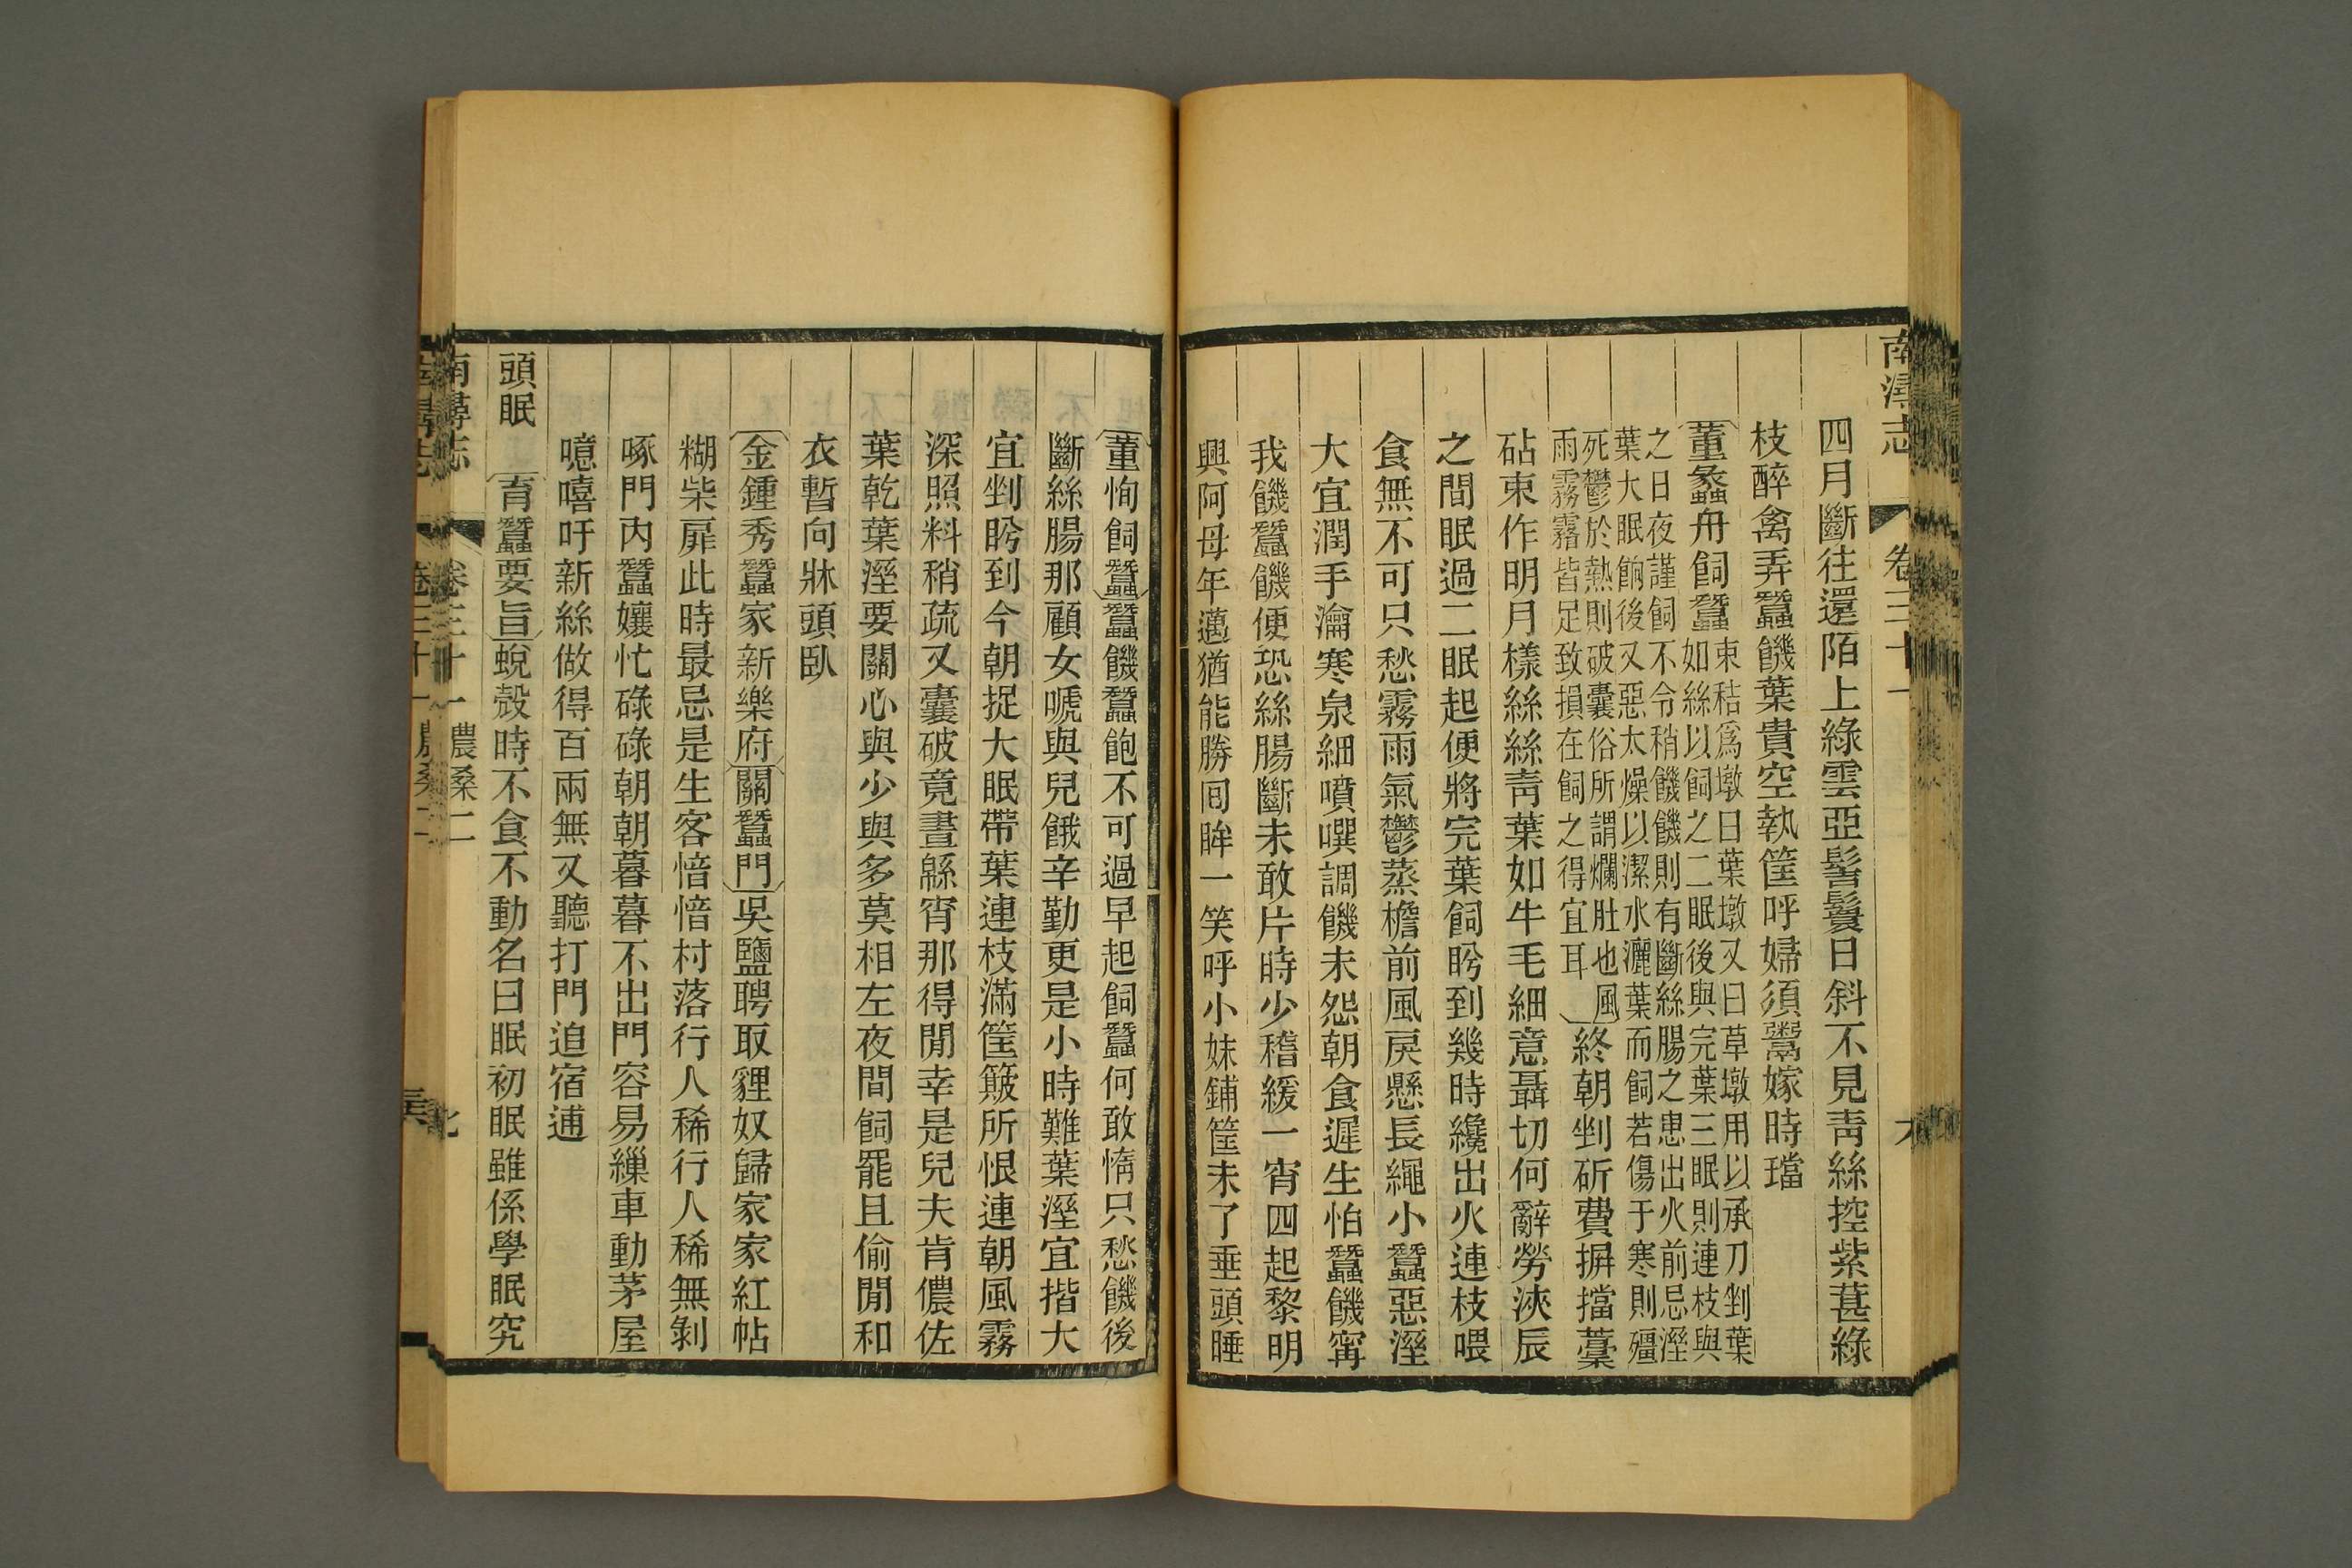 南潯志
卷三十一
四月斷往還陌上綠雲亞髻鬟日斜不見靑絲控紫葚綠
枝醉禽弄蠶饑葉貴空執筐呼婦須鬻嫁時璫
董蠡舟飼蠶
束秸爲墩曰葉墩又曰草墩用以承刀剉葉
如絲以飼之二眠後與完葉三眠則連枝與
之日夜謹飼不令稍饑饑則有斷絲腸之患出火前忌溼
葉大眠餉後又惡太燥以潔水灑葉而飼若傷于寒則殭
死鬱於熱則破囊俗所謂爛肚也風
雨霧霜皆足致損在飼之得宜耳
終朝剉斫費摒擋藁
砧束作明月樣絲絲靑葉如牛毛細意聶切何辭勞浹辰
之間眠過二眠起便將完葉飼盻到幾時纔出火連枝喂
食無不可只愁霧雨氣鬱蒸檐前風戾懸長繩小蠶惡溼
大宜潤手瀹寒泉細噴噀調饑未怨朝食遲生怕蠶饑甯
我饑蠶饑便恐絲腸斷未敢片時少稽緩一宵四起黎明
興阿母年邁猶能勝囘眸一笑呼小妹鋪筐未了垂頭睡
董恂飼蠶蠶饑蠶飽不可過早起飼蠶何敢惰只愁饑後
斷絲腸那顧女嗁與兒餓辛勤更是小時難葉溼宜揩大
宜剉盻到今朝捉大眠帶葉連枝滿筐簸所恨連朝風霧
深照料稍疏又囊破竟晝緜宵那得閒幸是兒夫肯儂佐
葉乾葉溼要關心與少與多莫相左夜間飼罷且偷閒和
衣暫向牀頭臥
金鍾秀蠶家新樂府關蠶門吳鹽聘取貍奴歸家家紅帖
糊柴扉此時最忌是生客愔愔村落行人稀行人稀無剝
啄門內蠶孃忙碌碌朝朝暮暮不出門容易繅車動茅屋
噫嘻吁新絲做得百兩無又聽打門迫宿逋
頭眠
育蠶要旨蛻殼時不食不動名曰眠初眠雖係學眠究
南潯志
卷三十一
農桑二